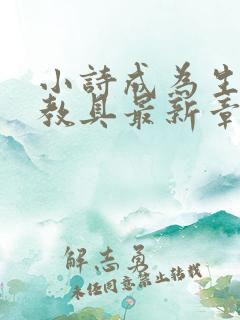 小詩成為生
教具最新章
解志勇
未經同意禁止转载